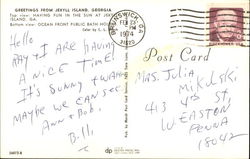 GREETINGS FROM JEKYLL ISLAND, GEORGIA
Top view: HAVING FUN IN THE SUN AT JEKYLL
ISLAND, GA.
Bottom view: OCEAN FRONT PUBLIC BATH HOUSE
Color by
BRUNSWICK, GA
FEB
1974
31520
Post Card
Hello
RAY + I ARE HAVING
A NICE TIME!
IT'S SUNNY + WARM
MAYBE WE CAN SEE
ANN + BOB.
Billi
Mrs. Julia
Mikulski
413 4th St
W. EASTON
PENNA
18042
dp